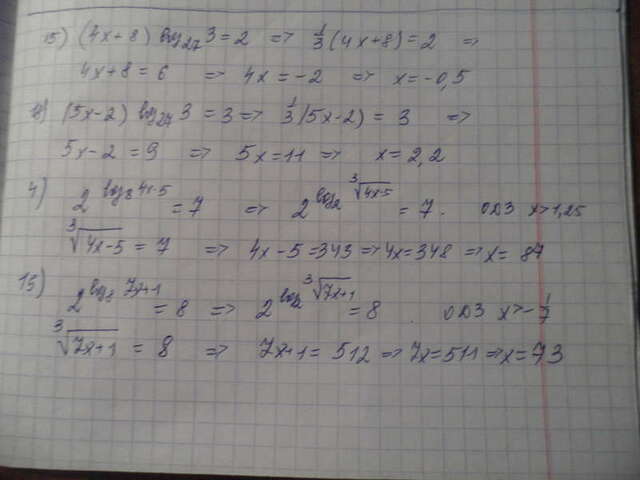 15) (4x+8) log₂₇3=2 => 1/3(4x+8)=2 =>
4x+8=6 => 4x=-2 => x=-0,5
(5x-2) log₂₇3=3=> 1/3(5x-2)=3 =>
5x-2=9 => 5x=11=> x=2,2
4) 2^(log₈ 4x-5)=7 => 2^(log₂ ∛(4x-5))=7. ОДЗ x>1,25
∛(4x-5)=7 => 4x-5=343=>4x=348=>x=87
15) 2^(log₈ 7x+1)=8 => 2^(log₂ ∛(7x+1))=8. ОДЗ x>-1/7
∛(7x+1)=8 => 7x+1=512=>7x=511=>x=73